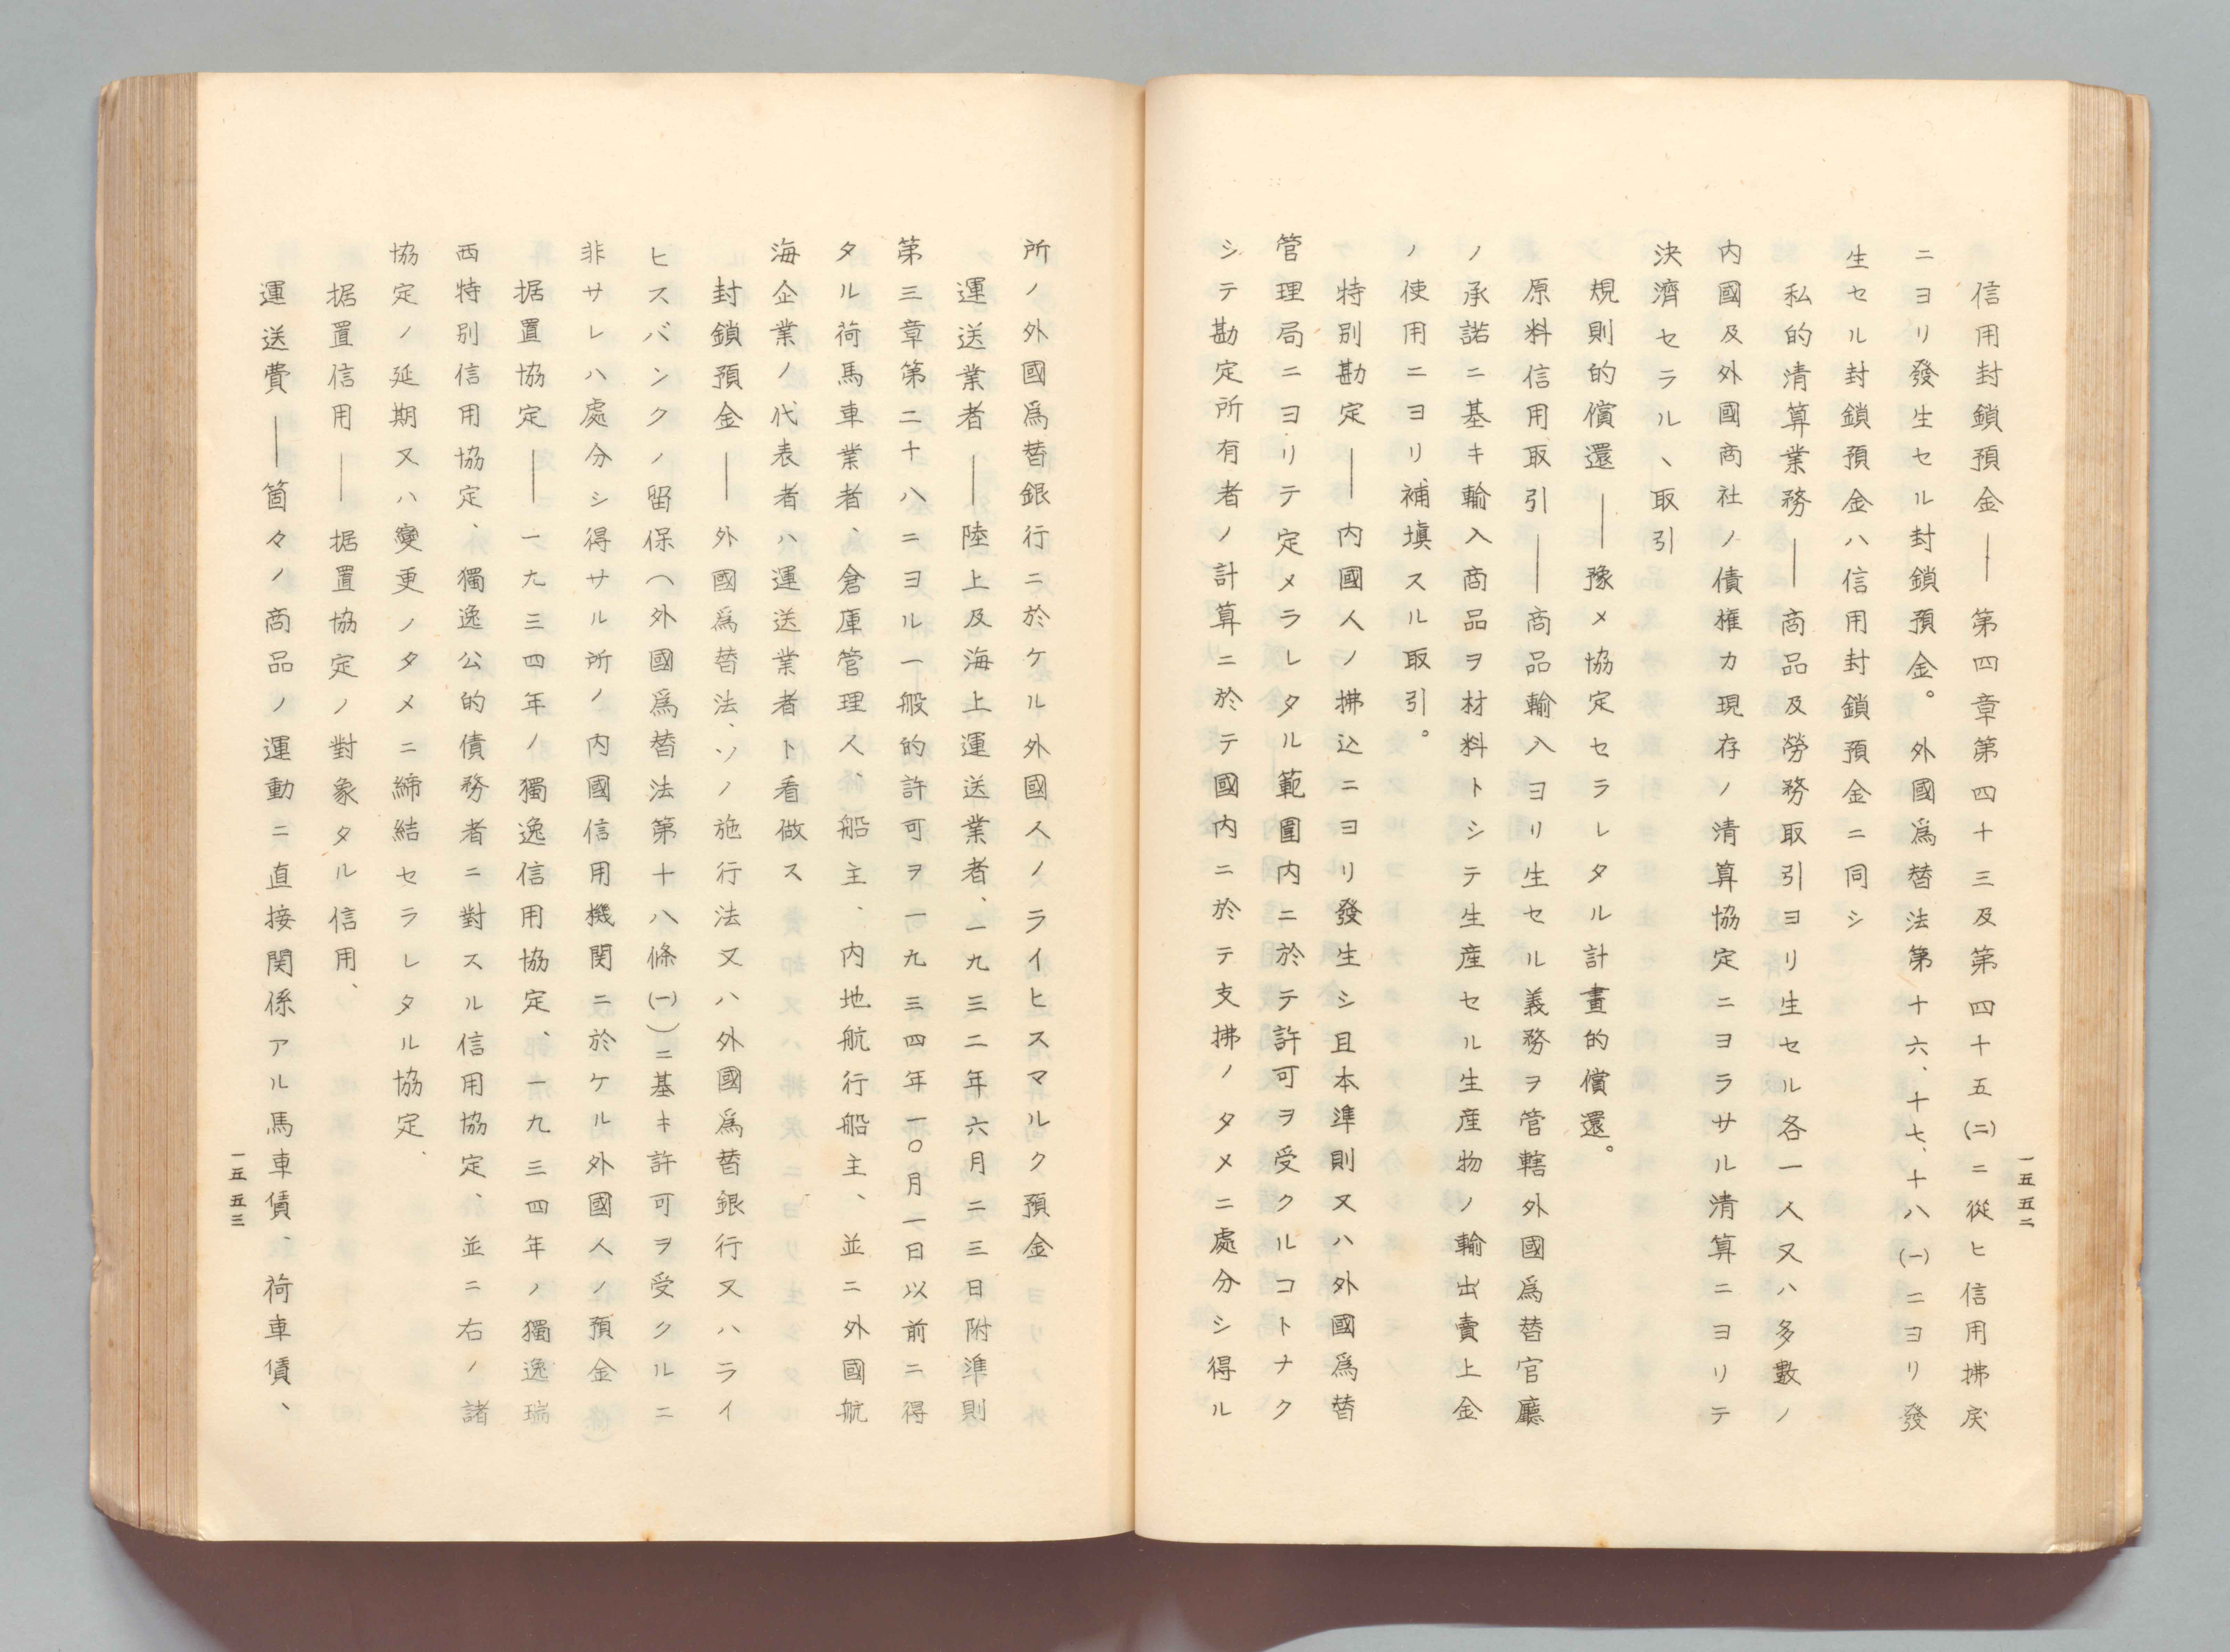 信用封鎖預金――第四章第四十三及第四十五(二)ニ從ヒ信用拂戾
ニヨリ發生セル封鎖預金。外國爲替法第十六、十七、十八(一)ニヨリ發
生セル封鎖預金ハ信用封鎖預金ニ同シ
私的清算業務――商品及勞務取引ヨリ生セル各一人又ハ多數ノ
內國及外國商社ノ債權カ現存ノ清算協定ニヨラサル清算ニヨリテ
決濟セラル、取引
規則的償還――豫メ協定セラレタル計畫的償還。
原料信用取引――商品輸入ヨリ生セル義務ヲ管轄外國爲替官廳
ノ承諾ニ基キ輸入商品ヲ材料トシテ生産セル生産物ノ輸出賣上金
ノ使用ニヨリ補塡スル取引。
特別勘定――內國人ノ拂込ニヨリ發生シ且本準則又ハ外國爲替
管理局ニヨリテ定メラレタル範圍內ニ於テ許可ヲ受クルコトナク
シテ勘定所有者ノ計算ニ於テ國內ニ於テ支拂ノタメニ處分シ得ル
一五五二
所ノ外國爲替銀行ニ於ケル外國人ノライヒスマルク預金
運送業者――陸上及海上運送業者、一九三二年六月二三日附準則
第三章第二十八ニヨル一般的許可ヲ一九三四年一〇月一日以前ニ得
タル荷馬車業者、倉庫管理人、船主、內地航行船主、並ニ外國航
海企業ノ代表者ハ運送業者ト看做ス
封鎖預金――外國爲替法、ソノ施行法又ハ外國爲替銀行又ハライ
ヒスバンクノ留保(外國爲替法第十八條(一))ニ基キ許可ヲ受クルニ
非サレハ處分シ得サル所ノ內國信用機関ニ於ケル外國人ノ預金
据置協定――一九三四年ノ獨逸信用協定、一九三四年ノ獨逸瑞
西特別信用協定、獨逸公的債務者ニ對スル信用協定、並ニ右ノ諸
協定ノ延期又ハ變更ノタメニ締結セラレタル協定、
据置信用――据置協定ノ對象タル信用、
運送費――箇々ノ商品ノ運動ニ直接関係アル馬車賃、荷車賃、
一五五三